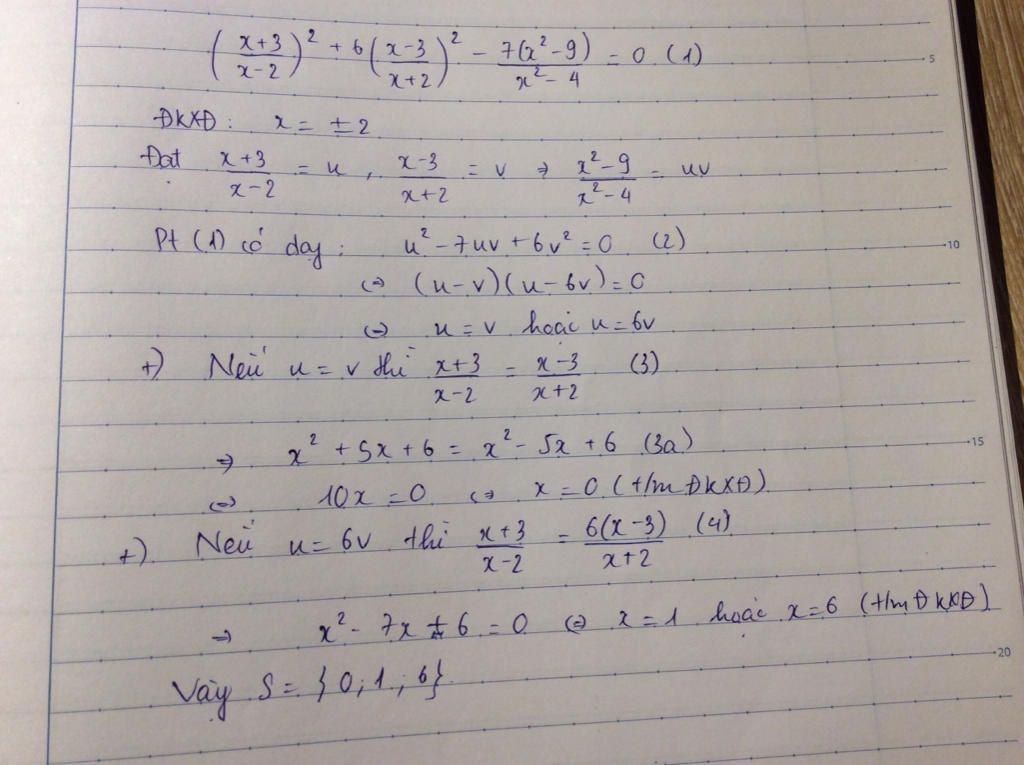 5
((x+3)/(x-2))² + 6((x-3)/(x+2))² - 7(x²-9)/(x²-4) = 0 (1)
ĐKXĐ: x = ±2
Đặt (x+3)/(x-2) = u, (x-3)/(x+2) = v ⇒ (x²-9)/(x²-4) = uv
Pt (1) có dạg: u² - 7uv + 6v² = 0 (2)
10
⇔ (u-v)(u-6v) = 0
⇔ u = v hoặc u = 6v
+) Nếu u = v thì (x+3)/(x-2) = (x-3)/(x+2) (3)
⇒ x² + 5x + 6 = x² - 5x + 6 (3a)
15
⇔ 10x = 0 ⇔ x = 0 (t/m ĐKXĐ)
+) Nếu u = 6v thì (x+3)/(x-2) = 6(x-3)/(x+2) (4)
⇒ x² - 7x + 6 = 0 ⇔ x = 1 hoặc x = 6 (t/m ĐKXĐ)
20
Vậy S = {0; 1; 6}